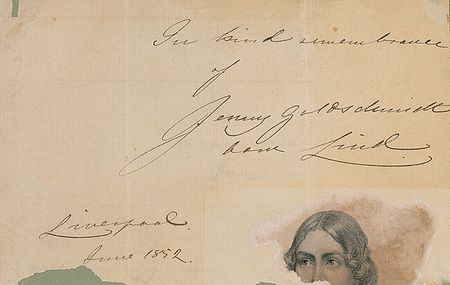 In kind remembrance
of
Jenny Goldschmidt
born Lind.
Liverpool.
June 1852.